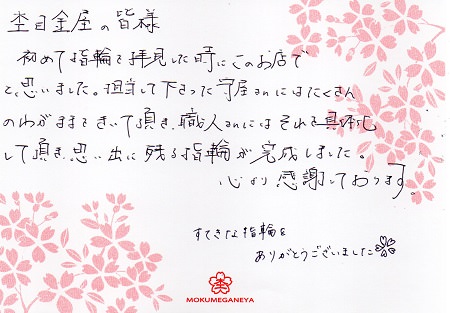 杢目金屋の皆様
初めて指輪を拝見した時にこのお店で
と思いました。担当して下さった守屋さんにはたくさん
のわがままをきいて頂き、職人さんにはそれを具体化
して頂き思い出に残る指輪が完成しました。
心より感謝しております。
すてきな指輪を
ありがとうございました
MOKUMEGANEYA